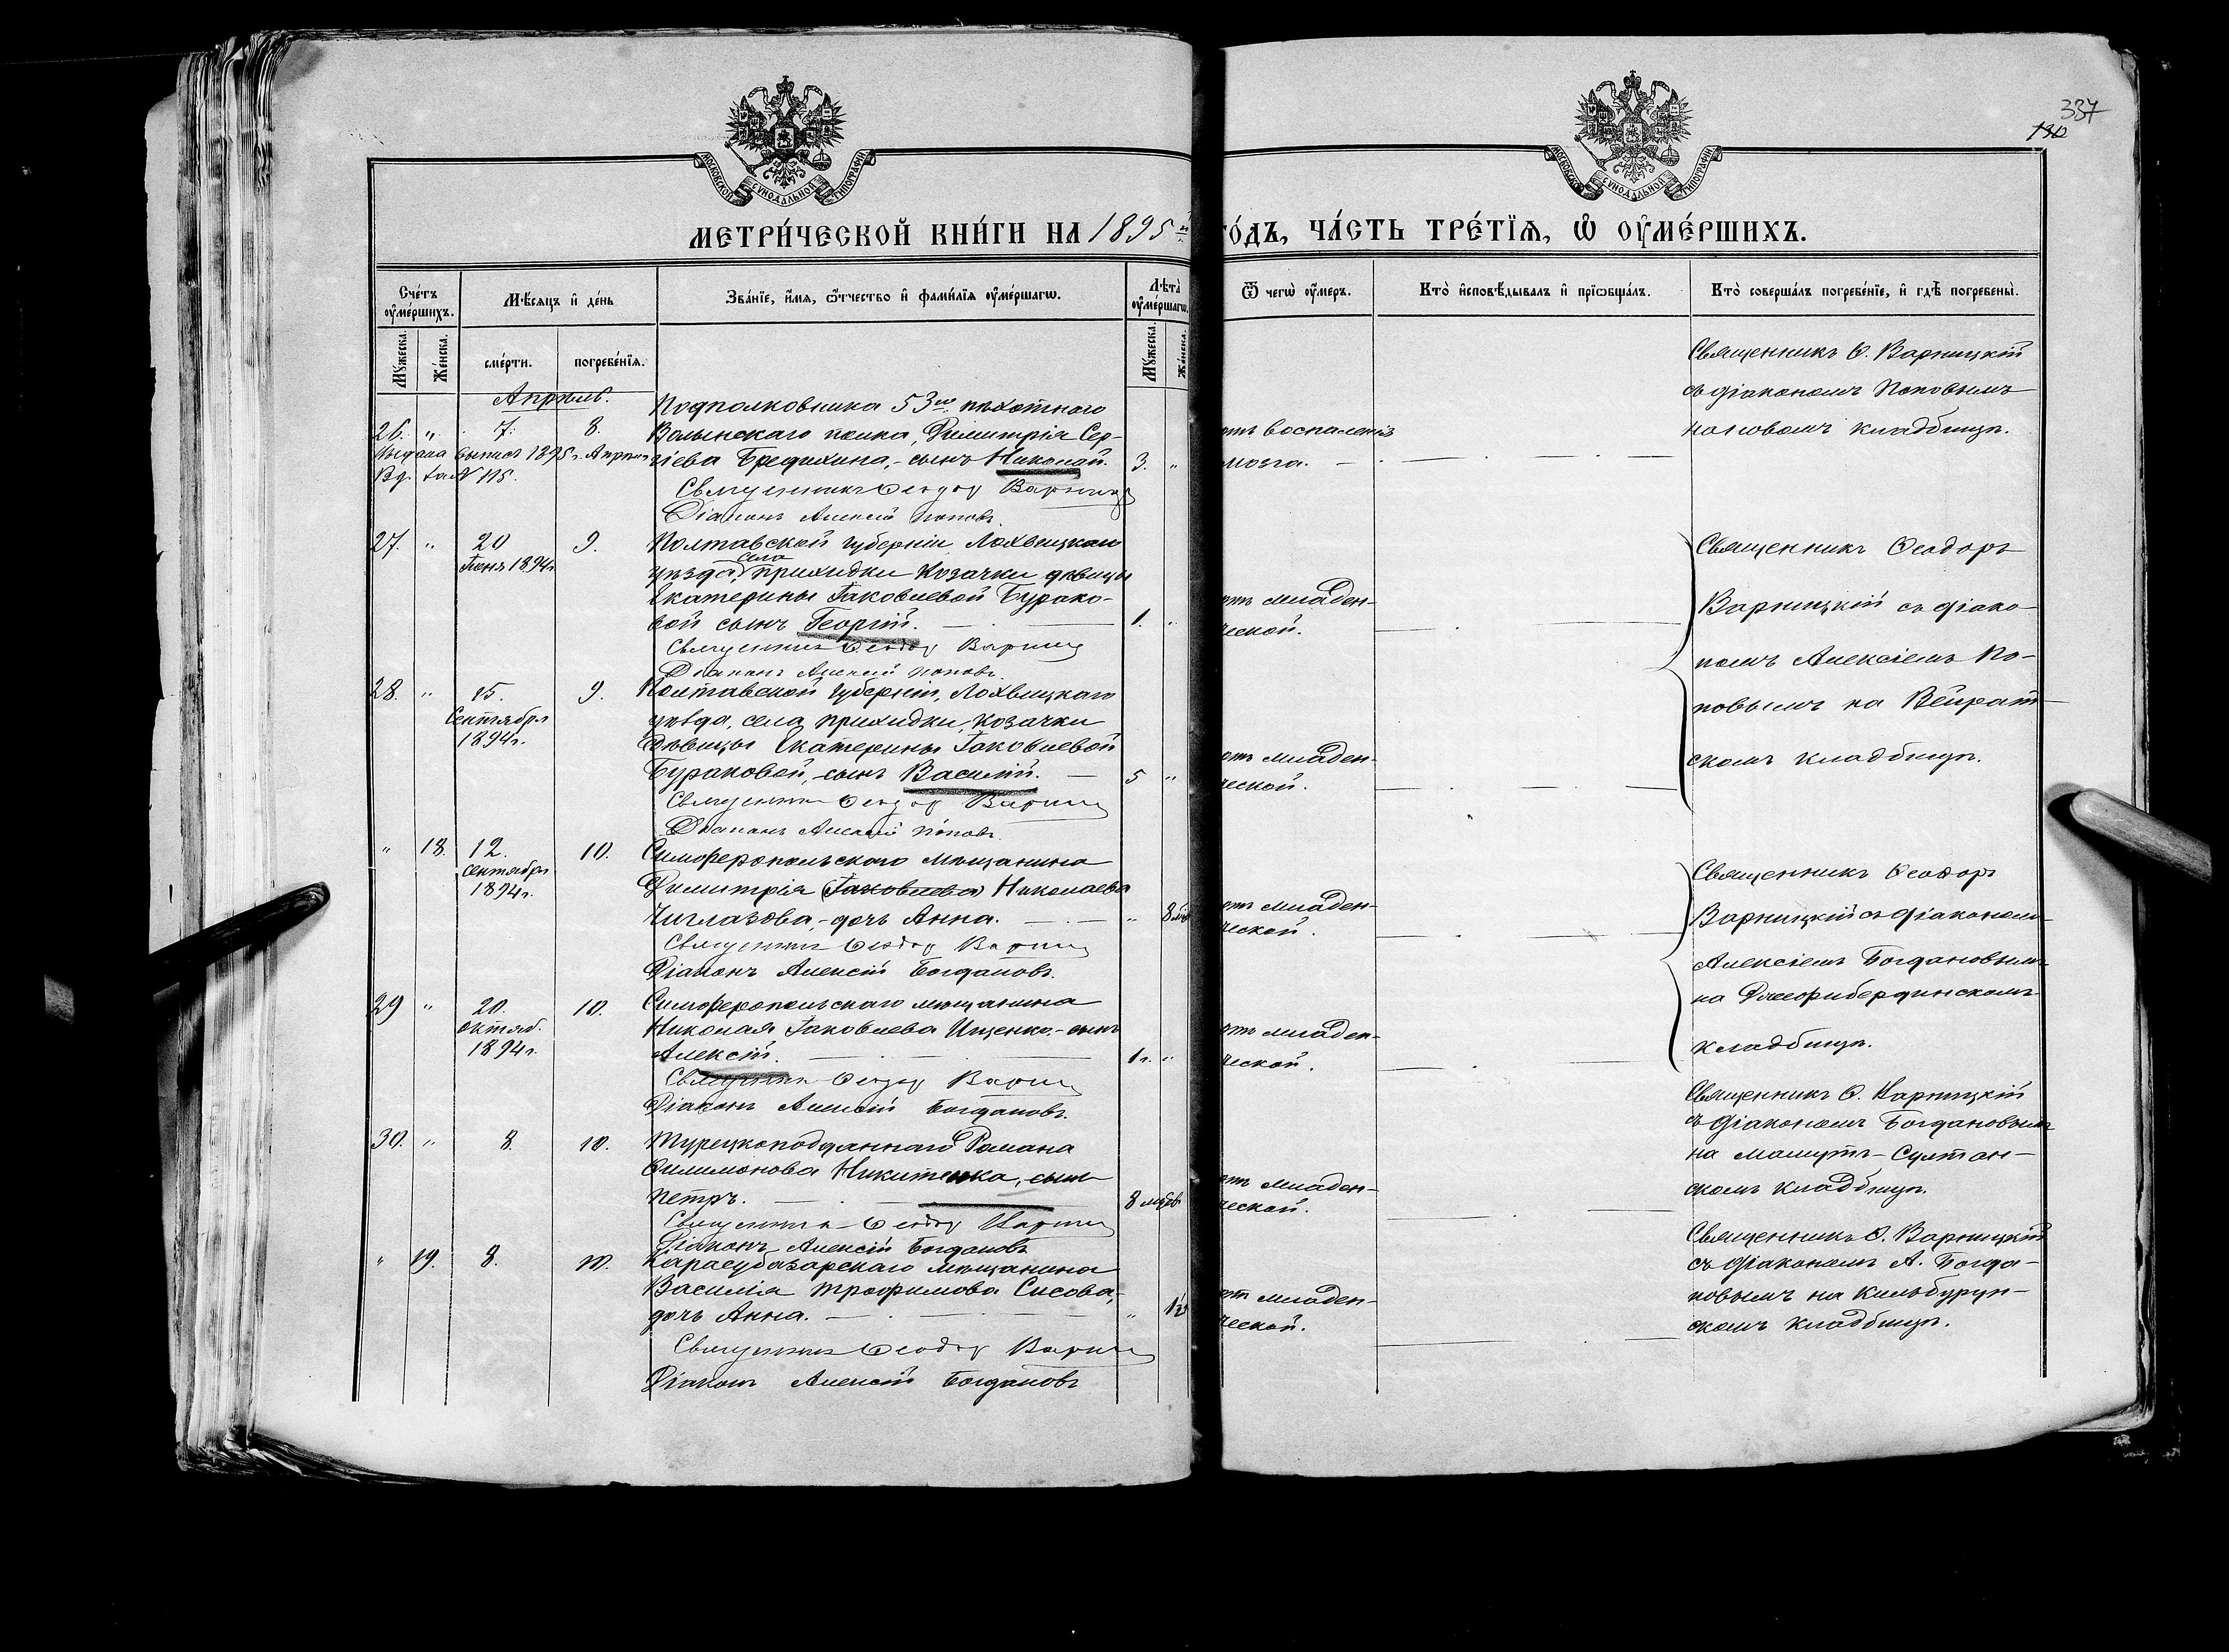 337
132
МОСКОВСКОЙ СУНОДАЛЬНОЙ ТИПОГРАФІИ
МОСКОВСКОЙ СУНОДАЛЬНОЙ ТИПОГРАФІИ
МЕТРИ́ЧЕСКОЙ КНИ́ГИ НА 1895 й
ГО́ДЪ, ЧА́СТЬ ТРЕ́ТЇѦ, Ѡ҆ ОУ҆МЕ́РШИХЪ.
Сче́тъ оу҆ме́ршихъ.
Мѣ́сяцъ и҆ де́нь
Зва́нїе, и҆́мѧ, ѻ҆́тчество и҆ фами́лїѧ оу҆ме́ршагѡ.
Лѣ́та оу҆ме́ршагѡ.
Ѿ чегѡ̀ оу҆́меръ.
Кто̀ и҆сповѣ́дывалъ и҆ прїѡбща́лъ.
Кто̀ соверша́лъ погребе́нїе, и҆ гдѣ̀ погребены̀.
Мꙋ́жеска.
Же́нска.
сме́рти.
погребе́нїѧ.
Мꙋ́жеска.
Же́нска.
Апрель.
26. " 7. 8.
Выдана выпись 1895 г. Апрѣля
за № 115.
Подполковника 53го пѣхотнаго
Волынскаго полка, Димитрія Сер-
гіева Бредихина, - сынъ Николай. 3. "
Священникъ Ѳеодор Варниц
Діаконъ Алексій Поповъ.
отъ воспаленія
мозга.
Священникъ Ѳ. Варницкій
съ діакономъ Поповымъ
на новомъ кладбищѣ.
27. " 20 9.
Іюня 1894 г.
Полтавской губерніи Лохвицкаго
села
уѣзда, прихидки козачки дѣвицы
Екатерины Іаковлевой Бурако-
вой сынъ Георгій. 1. "
Священникъ Ѳеодор Варниц
Діаконъ Алексій Поповъ.
отъ младен-
ческой.
Священникъ Ѳеодоръ
Варницкій съ діако-
номъ Алексіемъ По-
повымъ на Бейрат-
скомъ кладбищѣ.
28. " 15. 9.
Сентября
1894 г.
Полтавской губерніи, Лохвицкаго
уѣзда, села прихидки, козачки
дѣвицы Екатерины Іаковлевой
Бураковой, - сынъ Василій. 5 "
Священникъ Ѳеодор Варниц
Діаконъ Алексій Поповъ.
отъ младен-
ческой.
" 18. 12. 10.
Сентября
1894 г.
Симферопольскаго мѣщанина
Димитрія (Іаковлева) Николаева
Чиглазова, - дочь Анна. " 8 м
Священникъ Ѳеодор Варниц
Діаконъ Алексій Богдановъ.
отъ младен-
ческой.
Священникъ Ѳеодоръ
Варницкій съ діакономъ
Алексіемъ Богдановымъ
на Джофибердинскомъ
кладбищѣ.
29 " 20. 10.
октяб.
1894 г.
Симферопольскаго мѣщанина
Николая Іаковлева Ищенко, - сынъ
Алексій. 1 г. "
Священникъ Ѳеодор Варниц
Діаконъ Алексій Богдановъ.
отъ младен-
ческой.
30. " 8. 10.
Турецкоподданнаго Романа
Филимонова Никитенка, сынъ
Петръ. 8 мѣс.
Священникъ Ѳеодор Варниц
Діаконъ Алексій Богдановъ
отъ младен-
ческой.
Священникъ Ѳ. Варницкій
съ діакономъ Богдановымъ
на Мамутъ-Султан-
скомъ кладбищѣ.
" 19. 8. 10.
Карасубазарскаго мѣщанина
Василія Трофимова Сисова,
дочь Анна. "
Священникъ Ѳеодор Варниц
Діаконъ Алексій Богдановъ
от младен-
ческой.
Священникъ Ѳ. Варницкій
съ діакономъ А. Богда-
новымъ на Кильбурун-
скомъ кладбищѣ.